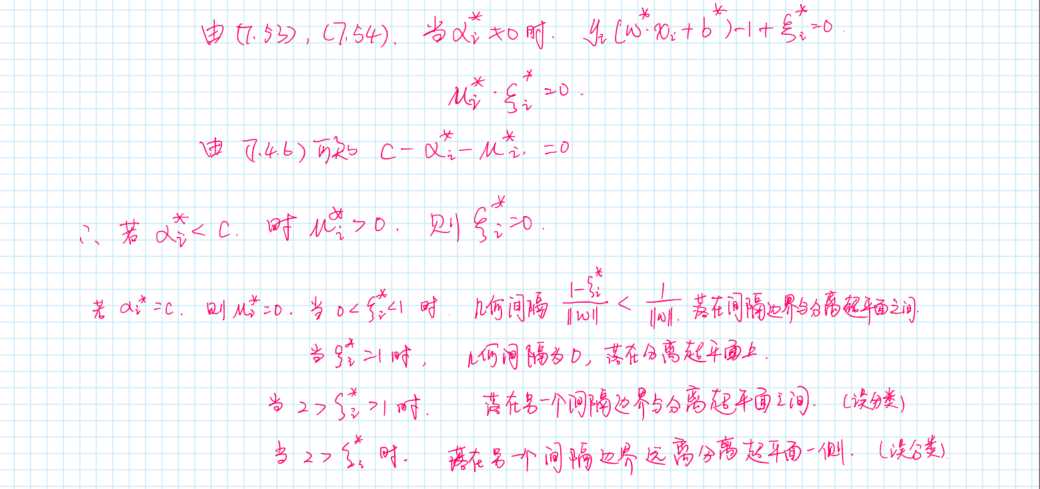 由(7.53),(7.54). 当αᵢ*≠0时. yᵢ(w*·xᵢ+b*)-1+ξᵢ*=0.
μᵢ*·ξᵢ*=0.
由(7.46)可知 C-αᵢ*-μᵢ*=0
∴若αᵢ*<C. 时μᵢ*>0. 则ξᵢ*=0.
若αᵢ*=C. 则μᵢ*=0. 当0<ξᵢ*<1时 几何间隔 (1-ξᵢ*)/||w|| < 1/||w||. 落在间隔边界与分离起平面之间.
当ξᵢ*=1时, 几何间隔为0, 落在分离起平面上.
当2>ξᵢ*>1时. 落在另一个间隔边界与分离起平面之间. (误分类)
当2>ξᵢ*时. 落在另一个间隔边界远离分离起平面一侧. (误分类)